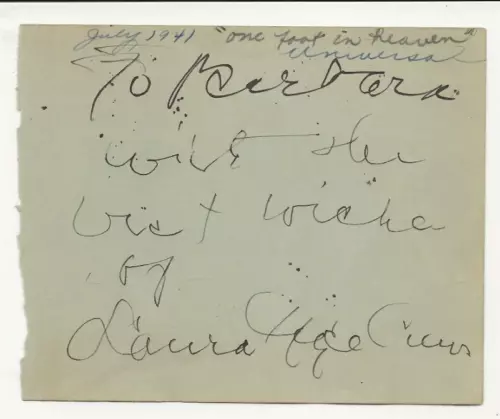 July 1941 "one foot in heaven"
Universal
To Barbara
with the
best wishes
of
Laura Hope Crews